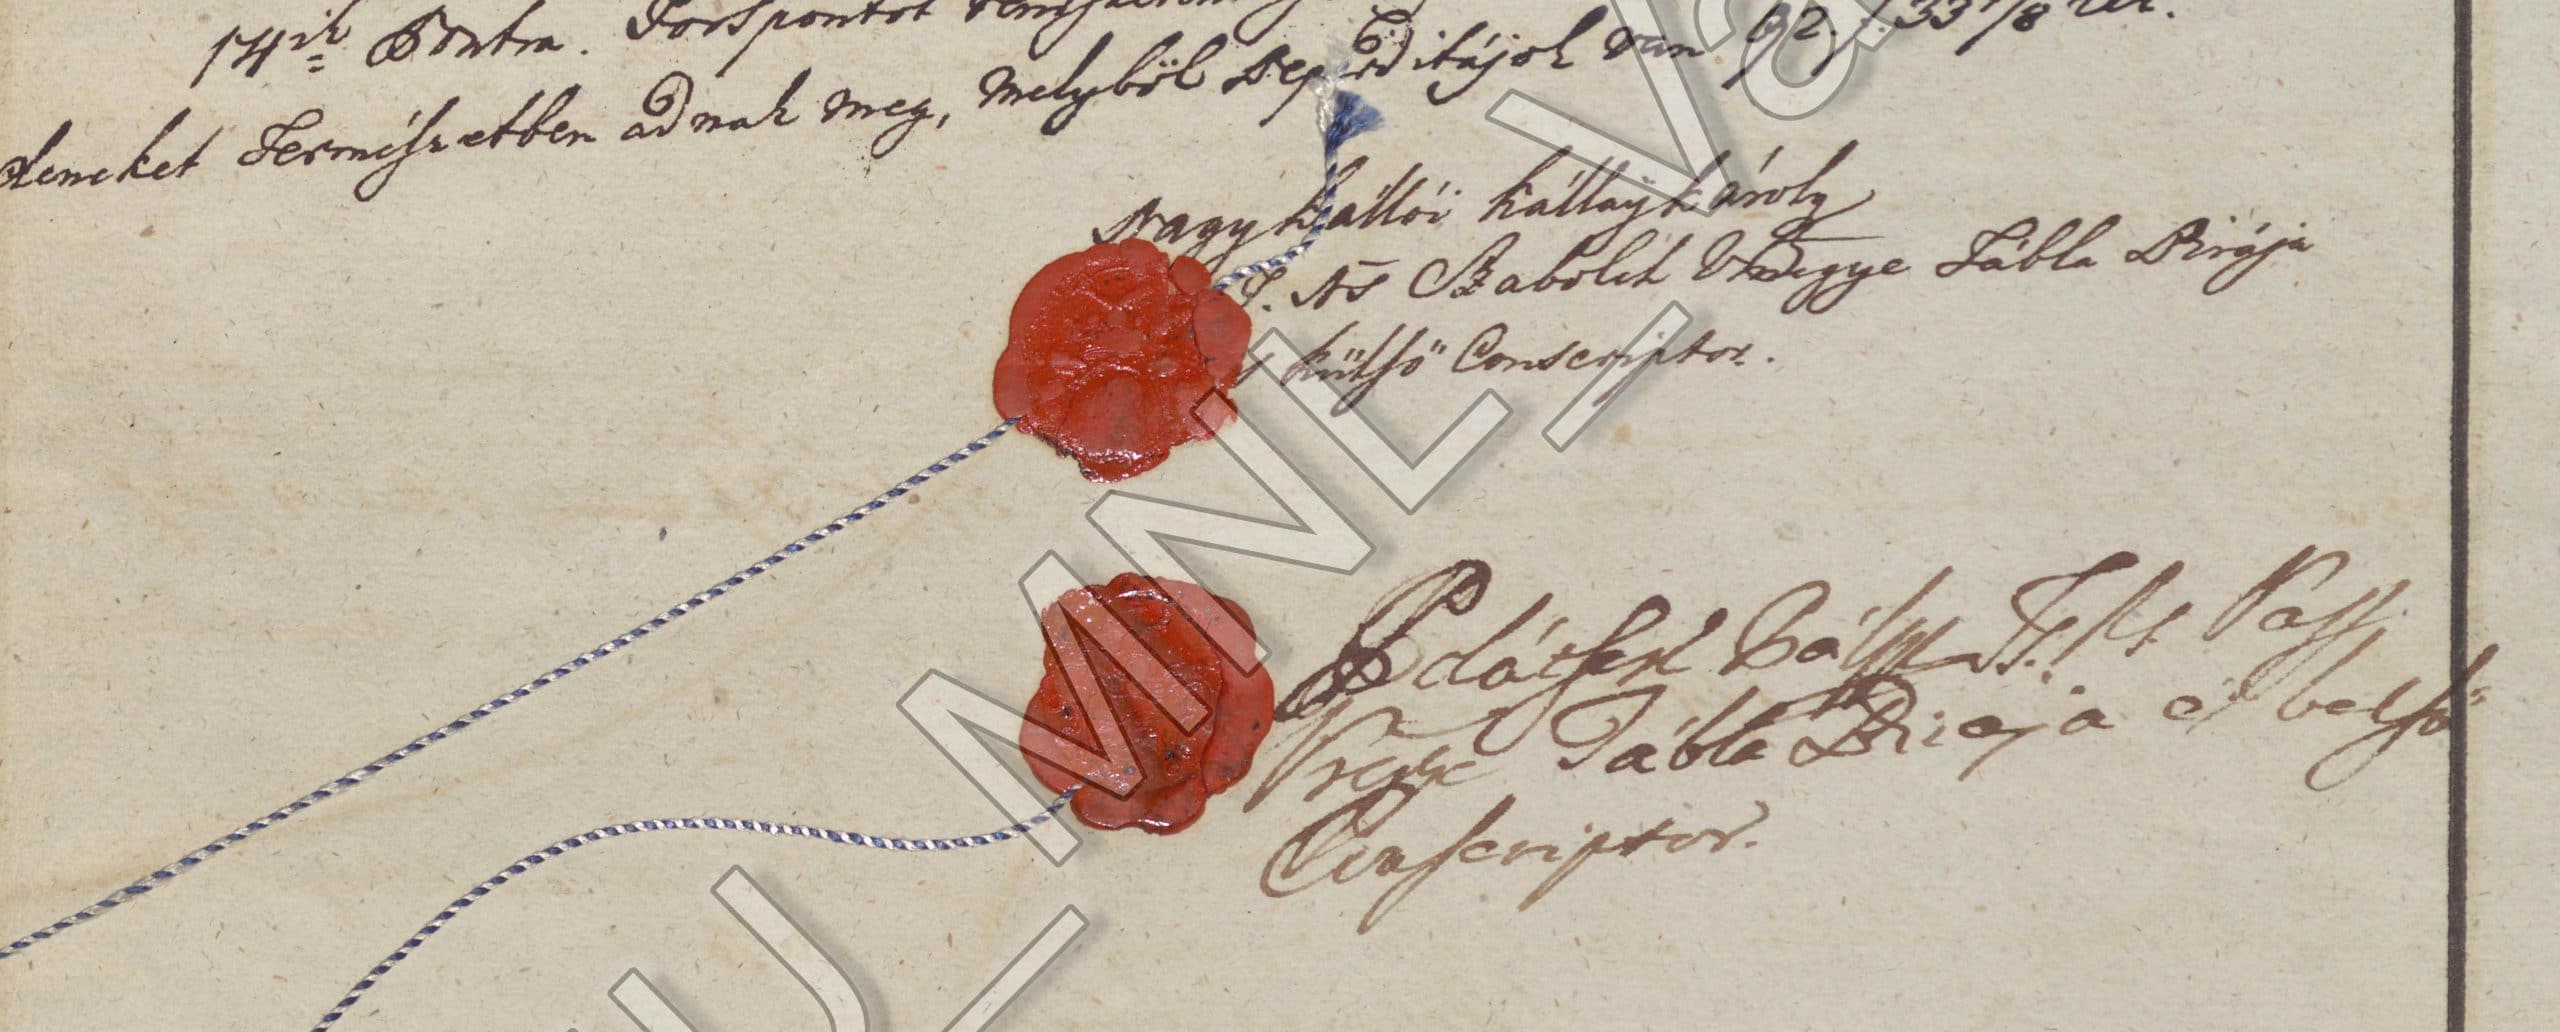 14ik Pontra. Forspontot
deneket Természetben adnak meg, melyből Deperditájok van 92 f. 33 1/8 xr.
Nagy Kállói Kállay Károly
T. Ns Szabolch Vármegye Tábla Birája
s külső Conscriptor.
T. Ns Vass
Vármegye Tábla Birája és belső
Conscriptor.
HU_MNL_Va